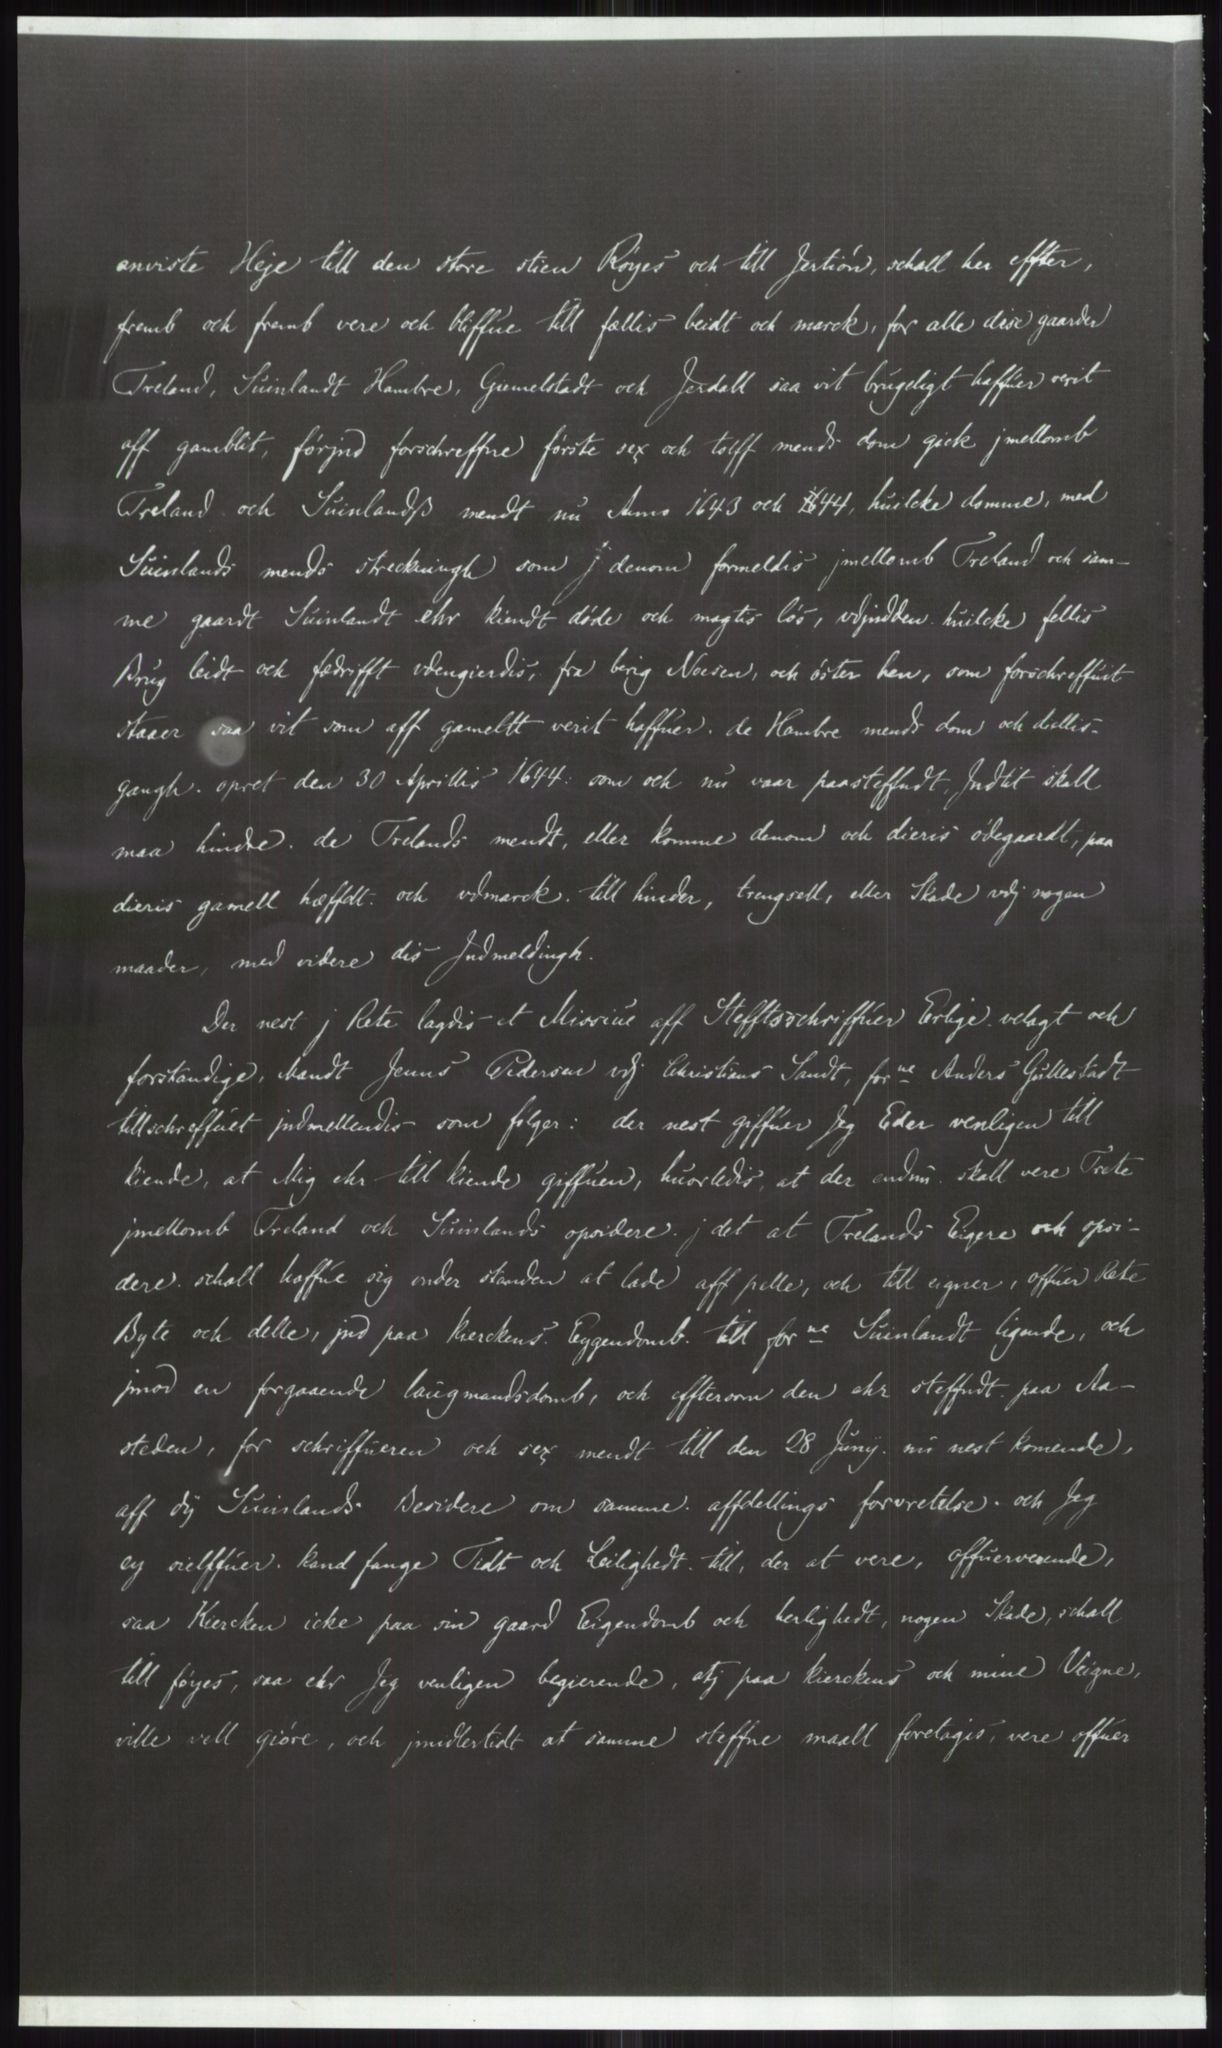 anviste Heje till den store stien Röyes och till Jertiön, schall her effter,
fremb och fremb vere och bliffue till fællis beidt och marck, for alle dise gaarder
Treland, Suinlandt Hambre, Giemelstadt och Jerdall saa vit brugeligt haffuer verit
aff gamblit, förjnd forschreffne förste sex och tolff mends dom gick jmellomb
Treland och Suinlandß mendt nu Anno 1643 och 1644, huilcke domme, med
Suinlands mends streckningh som j denom formeldis jmellomb Treland och sam-
me gaardt Suinlandt ehr kiendt döde och magtis lös, vdjndden huilcke fellis
Brug beidt och fædrifft vdengierdis, fra berig Noesen, och öster hen, som forschreffuit
staaer saa vit som aff gameltt verit haffuer. de Hambre mends dom och dellis-
gangh. opret den 30 Aprillis 1644: som och nu vaar paasteffndt, Jndtit skall
maa hindre. de Trelands mendt, eller komme denom och dieris ödegaardt, paa
dieris gamell hæffdt. och vdmarck. till hinder, trengsell, eller Skade vdj nogen
maader, med videre dis Jndmeldingh.
Der nest j Rete lagdis et Missiue aff Stefftsschriffuer Erlige. velagt och
forstandige, Mandt Jenns Pedersen vdj Christians Sandt, forne Anders Gullestadt
tillschreffuet jndmellendis som fölger: der nest giffuer Jeg Eder venligen till
kiende, at Mig ehr till kiende giffuen, huorledis, at der endnu. skall vere Trete
jmellomb Treland och Suinlands opsidere. j det at Trelands Eigere och opsi-
dere. schall haffue sig under standen at lade aff pelle, och till eigner, offuer Rete
Byte och delle, jnd paa kierckens. Eygendomb. till forne Suinlandt ligende, och
jmod en forgaaende laugmandsdomb, och effterom den ehr steffndt. paa Aa-
steden, for schriffueren och sex mendt till den 28 Junij. nu nest komende,
aff dij Suinlands Besidere om samme. affdellings foruretelse. och Jeg
ey sielffuer. kand fange Tidt och Leilighedt. till, der at vere, offuerverende,
saa Kiercken icke paa sin gaard Eigendomb och herlighedt, nogen Skade, schall
till föyes, saa ehr Jeg venligen begierende, atj paa kierckens och mine Veigne,
ville vell giöre, och jmidlertidt at samme steffne maall foretagis, vere offuer